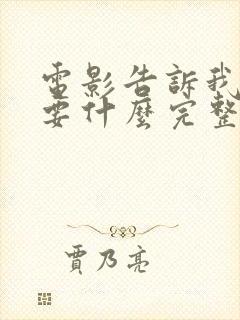 電影告訴我
要什麼完整
賈乃亮